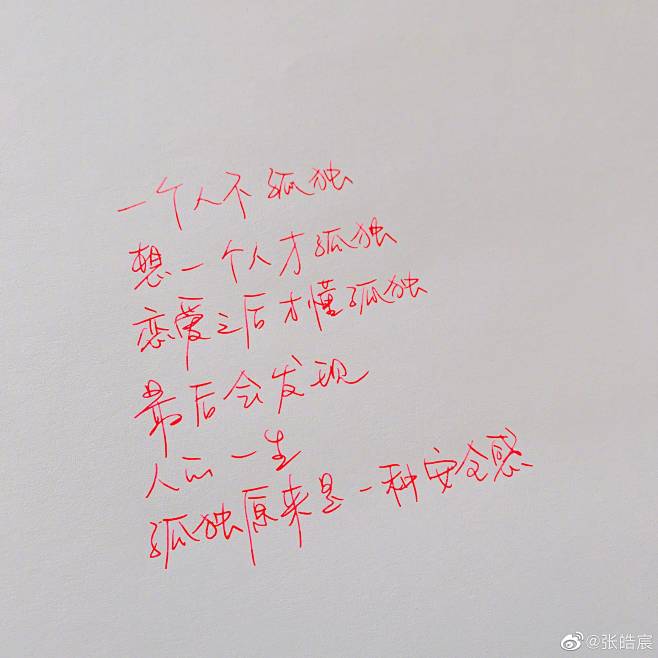 一个人不孤独
想一个人才孤独
恋爱之后才懂孤独
最后会发现
人的一生
孤独原来是一种安全感
@张皓宸